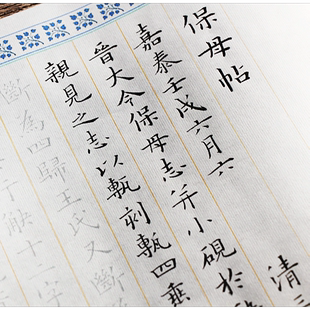 保母帖
嘉泰壬戌六月六
清三
晉大令保母志并小硯於
親見之志以甎刻甎四垂
斷為四歸王氏又斷
十二字